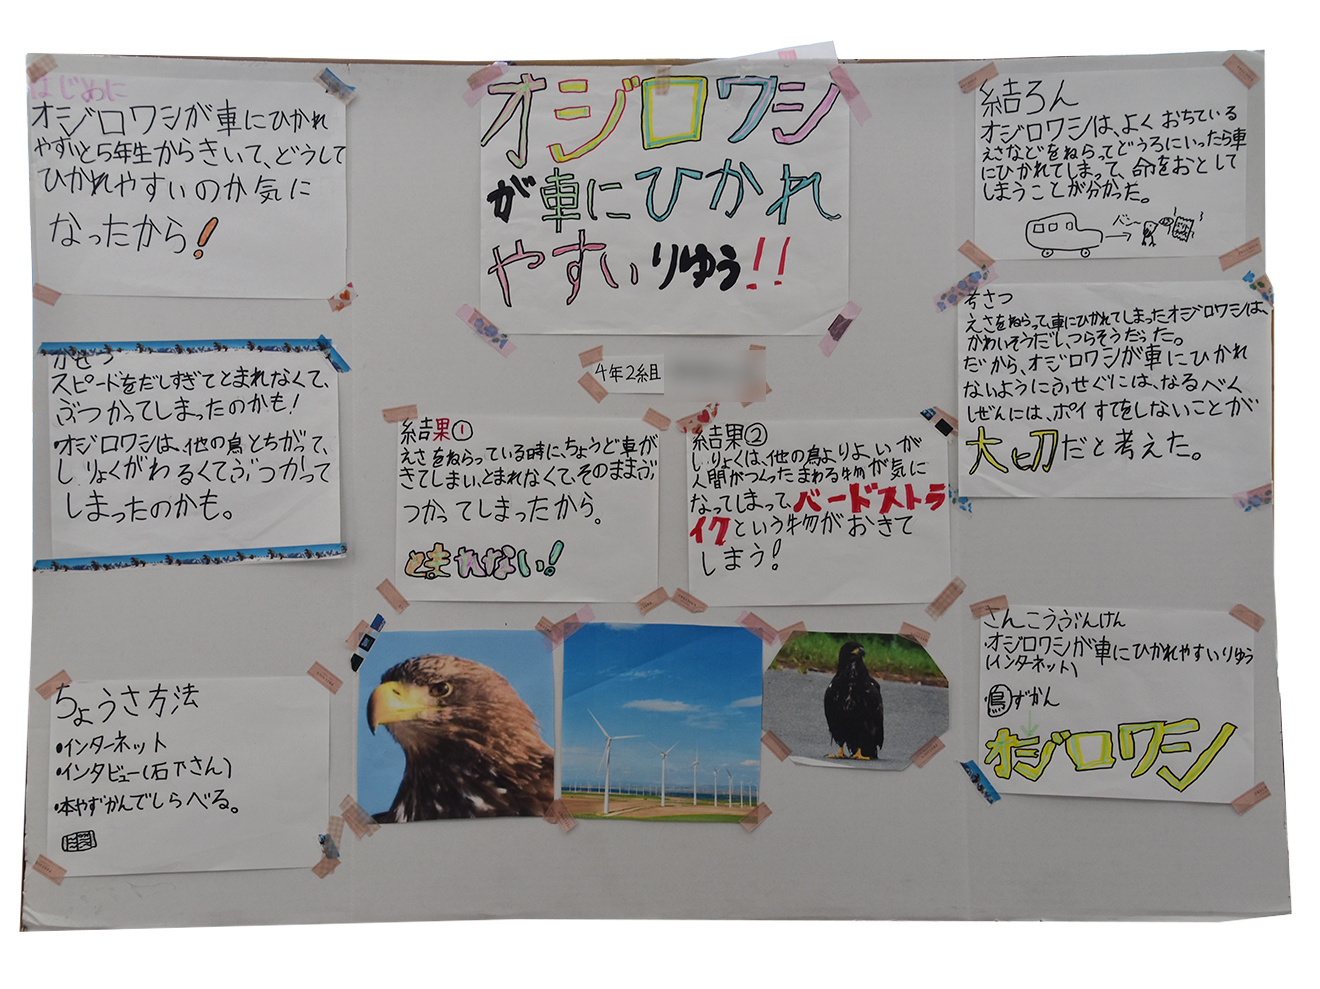 オジロワシ
が車にひかれ
やすいりゆう!!
4年2組
はじめに
オジロワシが車にひかれ
やすいと5年生からきいて、どうして
ひかれやすいのか気に
なったから!
かせつ
スピードをだしすぎてとまれなくて、
ぶつかってしまったのかも!
オジロワシは、他の鳥とちがって、
しりょくがわるくてぶつかって
しまったのかも。
ちょうさ方法
・インターネット
・インタビュー(石下さん)
・本やずかんでしらべる。
結果①
えさをねらっている時にちょうど車が
きてしまい、とまれなくて、そのままぶ
つかってしまったから。
とまれない!
結果②
しりょくは、他の鳥よりよいが
人間がつくったまわる物が気に
なってしまって、バードストラ
イクという物がおきて
しまう!
結ろん
オジロワシは、よくおちている
えさなどをねらってどうろにいったら車
にひかれてしまって、命をおとして
しまうことが分かった。
バン
考さつ
えさをねらって、車にひかれてしまったオジロワシは、
かわいそうだし、つらそうだった。
だから、オジロワシが車にひかれ
ないようにふせぐには、なるべく
しぜんには、ポイすてをしないことが
大切だと考えた。
さんこうぶんけん
・オジロワシが車にひかれやすいりゆう
(インターネット)
・鳥ずかん
オジロワシ